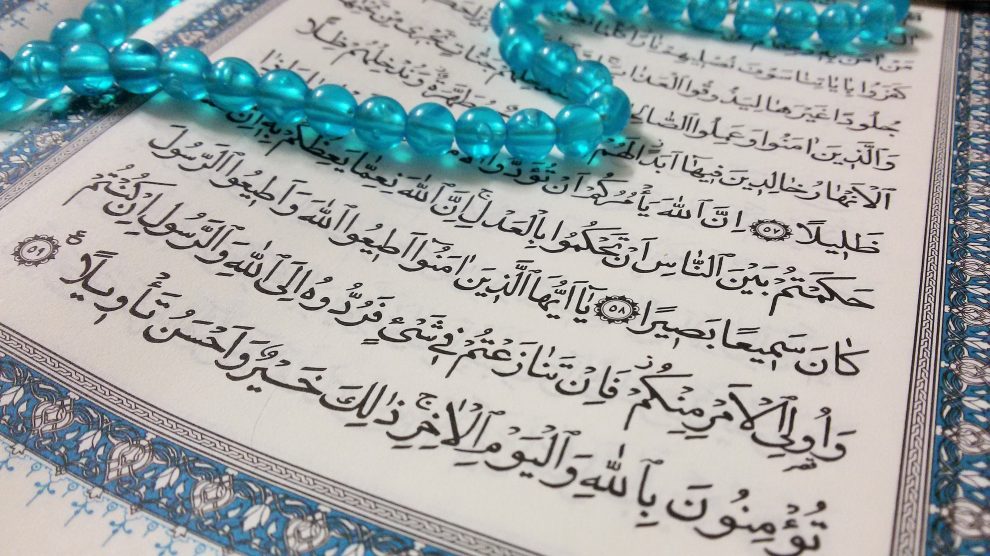 مَنْ اٰمَنَ
كَفَرُوا بِاٰيَاتِنَا سَوْفَ نُصْلِيهِمْ نَارًا كُلَّمَا
جُلُودًا غَيْرَهَا لِيَذُوقُوا الْعَذَابَ
وَالَّذِينَ اٰمَنُوا وَعَمِلُوا الصَّالِحَاتِ سَنُدْخِلُهُمْ جَنَّاتٍ تَجْرِي مِنْ تَحْتِهَا
اَلْاَنْهَارُ خَالِدِينَ فِيهَٓا اَبَدًا لَهُمْ مُطَهَّرَةٌ وَنُدْخِلُهُمْ ظِلًّا
ظَلِيلًا ٥٧ اِنَّ اللّٰهَ يَأْمُرُكُمْ اَنْ تُؤَدُّوا
حَكَمْتُمْ بَيْنَ النَّاسِ اَنْ تَحْكُمُوا بِالْعَدْلِ اِنَّ اللّٰهَ نِعِمَّا يَعِظُكُمْ بِهِ اِنَّ
كَانَ سَمِيعًا بَصِيرًا ٥٨ يَٓا اَيُّهَا الَّذِينَ اٰمَنُٓوا اَطِيعُوا اللّٰهَ وَاَطِيعُوا الرَّسُولَ
وَاُولِي الْاَمْرِ مِنْكُمْ فَاِنْ تَنَازَعْتُمْ فِي شَيْءٍ فَرُدُّوهُ اِلَى اللّٰهِ وَالرَّسُولِ اِنْ كُنْتُمْ
تُؤْمِنُونَ بِاللّٰهِ وَالْيَوْمِ الْاٰخِرِ ذٰلِكَ خَيْرٌ وَاَحْسَنُ تَأْوِيلًا ٥٩